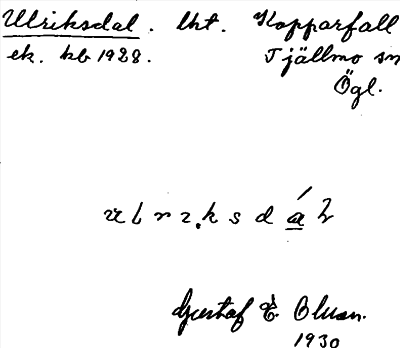 Ulriksdal. lht. Kopparfall
ek. kb 1928. Tjällmo sn
Ögl.
u l r ı . k s d á l
Gustaf E. Olsson.
1930